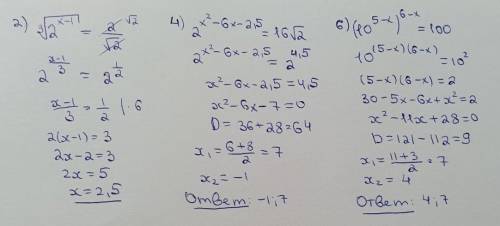 2) ∛(2^(x-1)) = 2^√2/√2
2^((x-1)/3) = 2^(1/2)
(x-1)/3 = 1/2 | · 6
2(x-1) = 3
2x-2 = 3
2x = 5
x = 2,5
4) 2^(x²-6x-2,5) = 16√2
2^(x²-6x-2,5) = 2^(4,5)
x²-6x-2,5 = 4,5
x²-6x-7 = 0
D = 36+28 = 64
x₁ = (6+8)/2 = 7
x₂ = -1
Ответ: -1; 7
6) (10^(5-x))^(6-x) = 100
10^((5-x)(6-x)) = 10²
(5-x)(6-x) = 2
30-5x-6x+x² = 2
x²-11x+28 = 0
D = 121-112 = 9
x₁ = (11+3)/2 = 7
x₂ = 4
Ответ: 4; 7